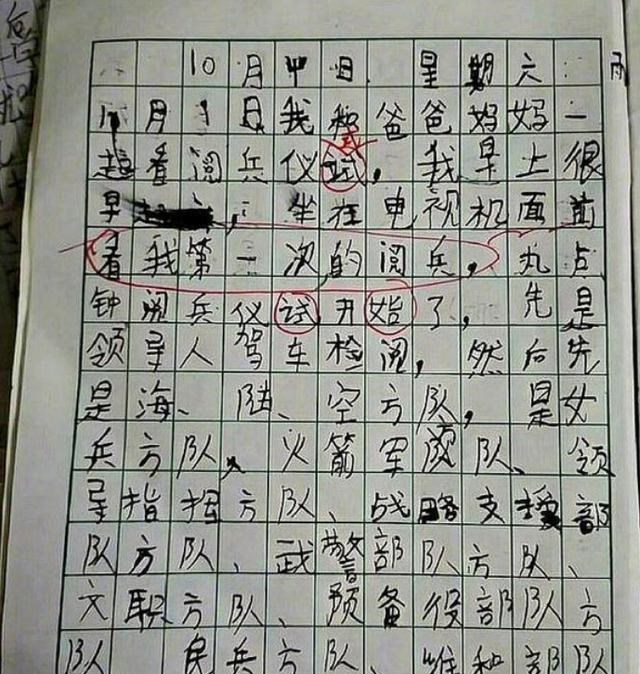 10月中旬 星期六 雨
10月1日我和爸爸妈妈一
起看阅兵仪试，我早上很
早，坐在电视机面前
看我第一次的阅兵，丸点
钟阅兵仪试开始了，先是
领导人驾车检阅，然后先
是海、陆、空方队，是女
兵方队、火箭军方队、领
导指挥方队、战略支援部
队方队、武警部队方队、
文职方队、预备役部队方
队 民兵方队、维和部队